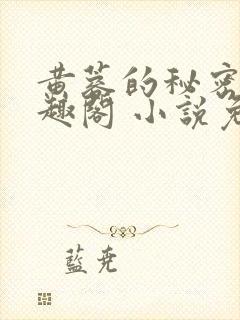 黄蓉的秘密
趣閣 小說免
藍堯